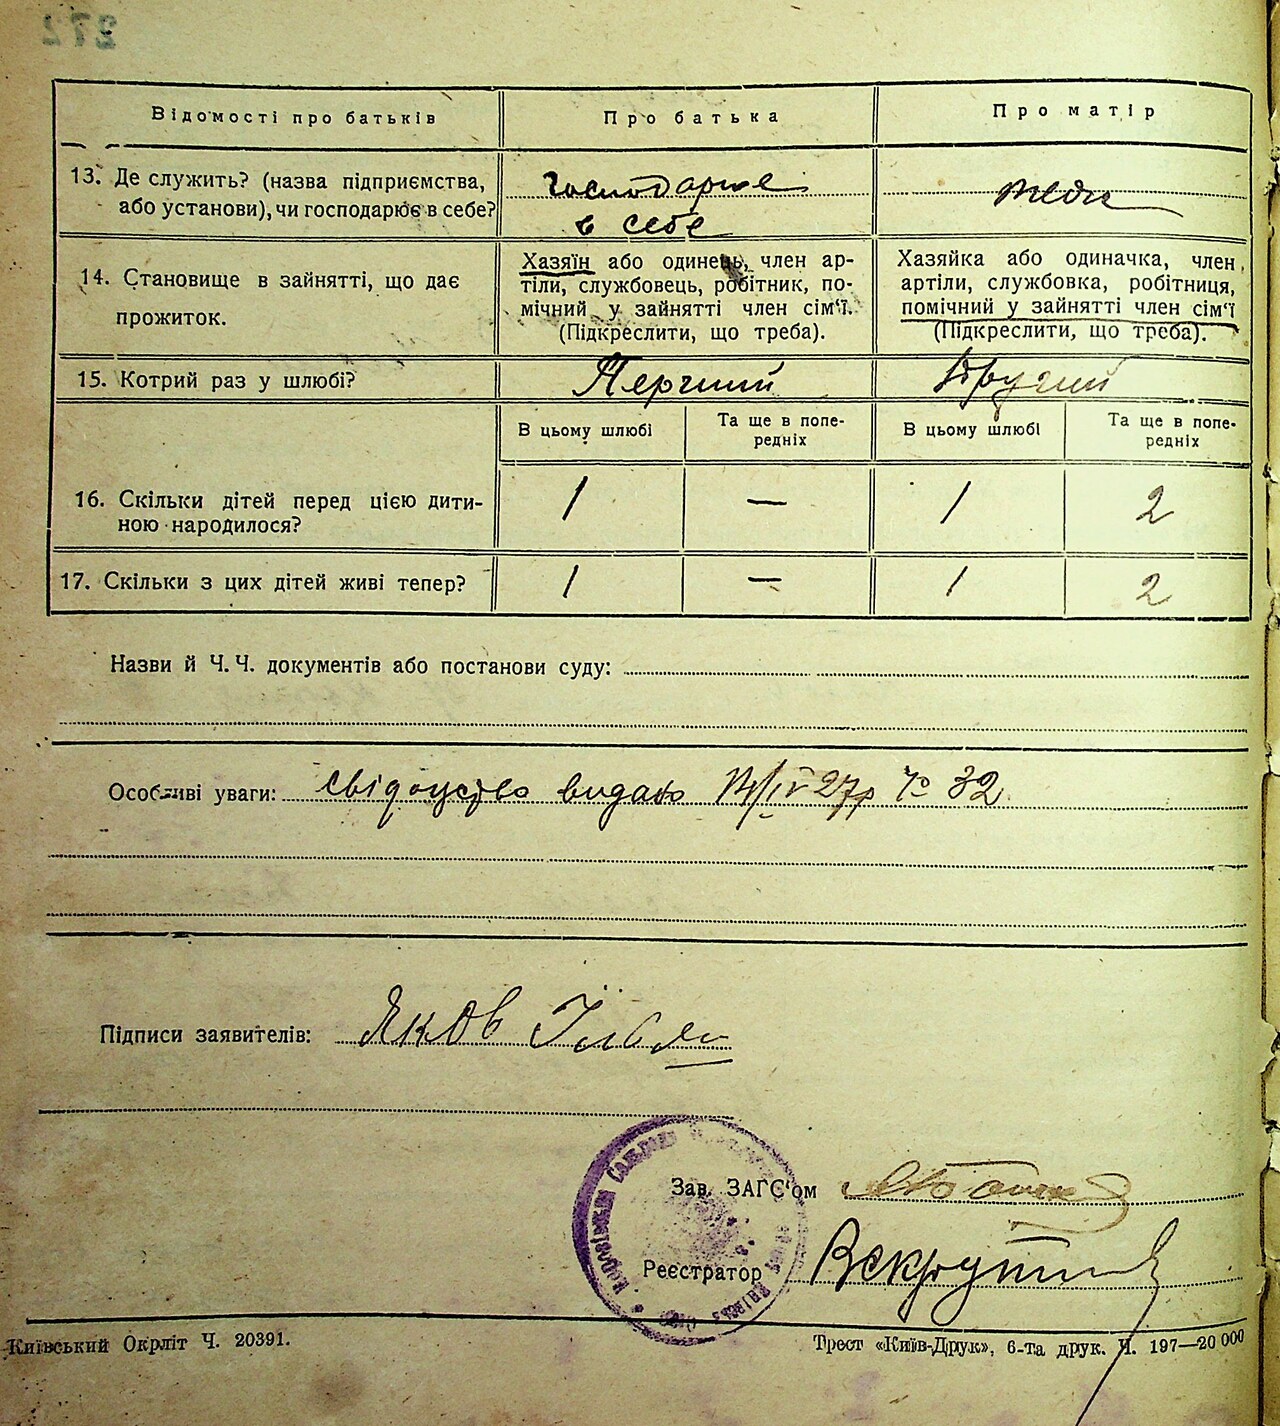 272
Відомості про батьків
Про батька
Про матір
13. Де служить? (назва підприємства,
або установи), чи господарює в себе?
господарює
в себе
14. Становище в зайнятті, що дає
прожиток.
Хазяїн або одинець, член ар-
тіли, службовець, робітник, по-
мічний у зайнятті член сім'ї.
(Підкреслити, що треба).
Хазяйка або одиначка, член
артіли, службовка, робітниця,
помічний у зайнятті член сім'ї
(Підкреслити, що треба).
15. Котрий раз у шлюбі?
Перший
Другий
В цьому шлюбі
Та ще в попе-
редніх
В цьому шлюбі
Та ще в попе-
редніх
16. Скільки дітей перед цією дити-
ною народилося?
1 — 1 2
17. Скільки з цих дітей живі тепер?
1 — 1 2
Назви й Ч.Ч. документів або постанови суду:
Особливі уваги: свідоцтво видано 14/IV 27р 32
Підписи заявителів: Яков
Зав. ЗАГС'ом
Реєстратор
Київський Окрліт Ч. 20391.
Трест «Київ-Друк», 6-та друк. Ч. 197—20 000